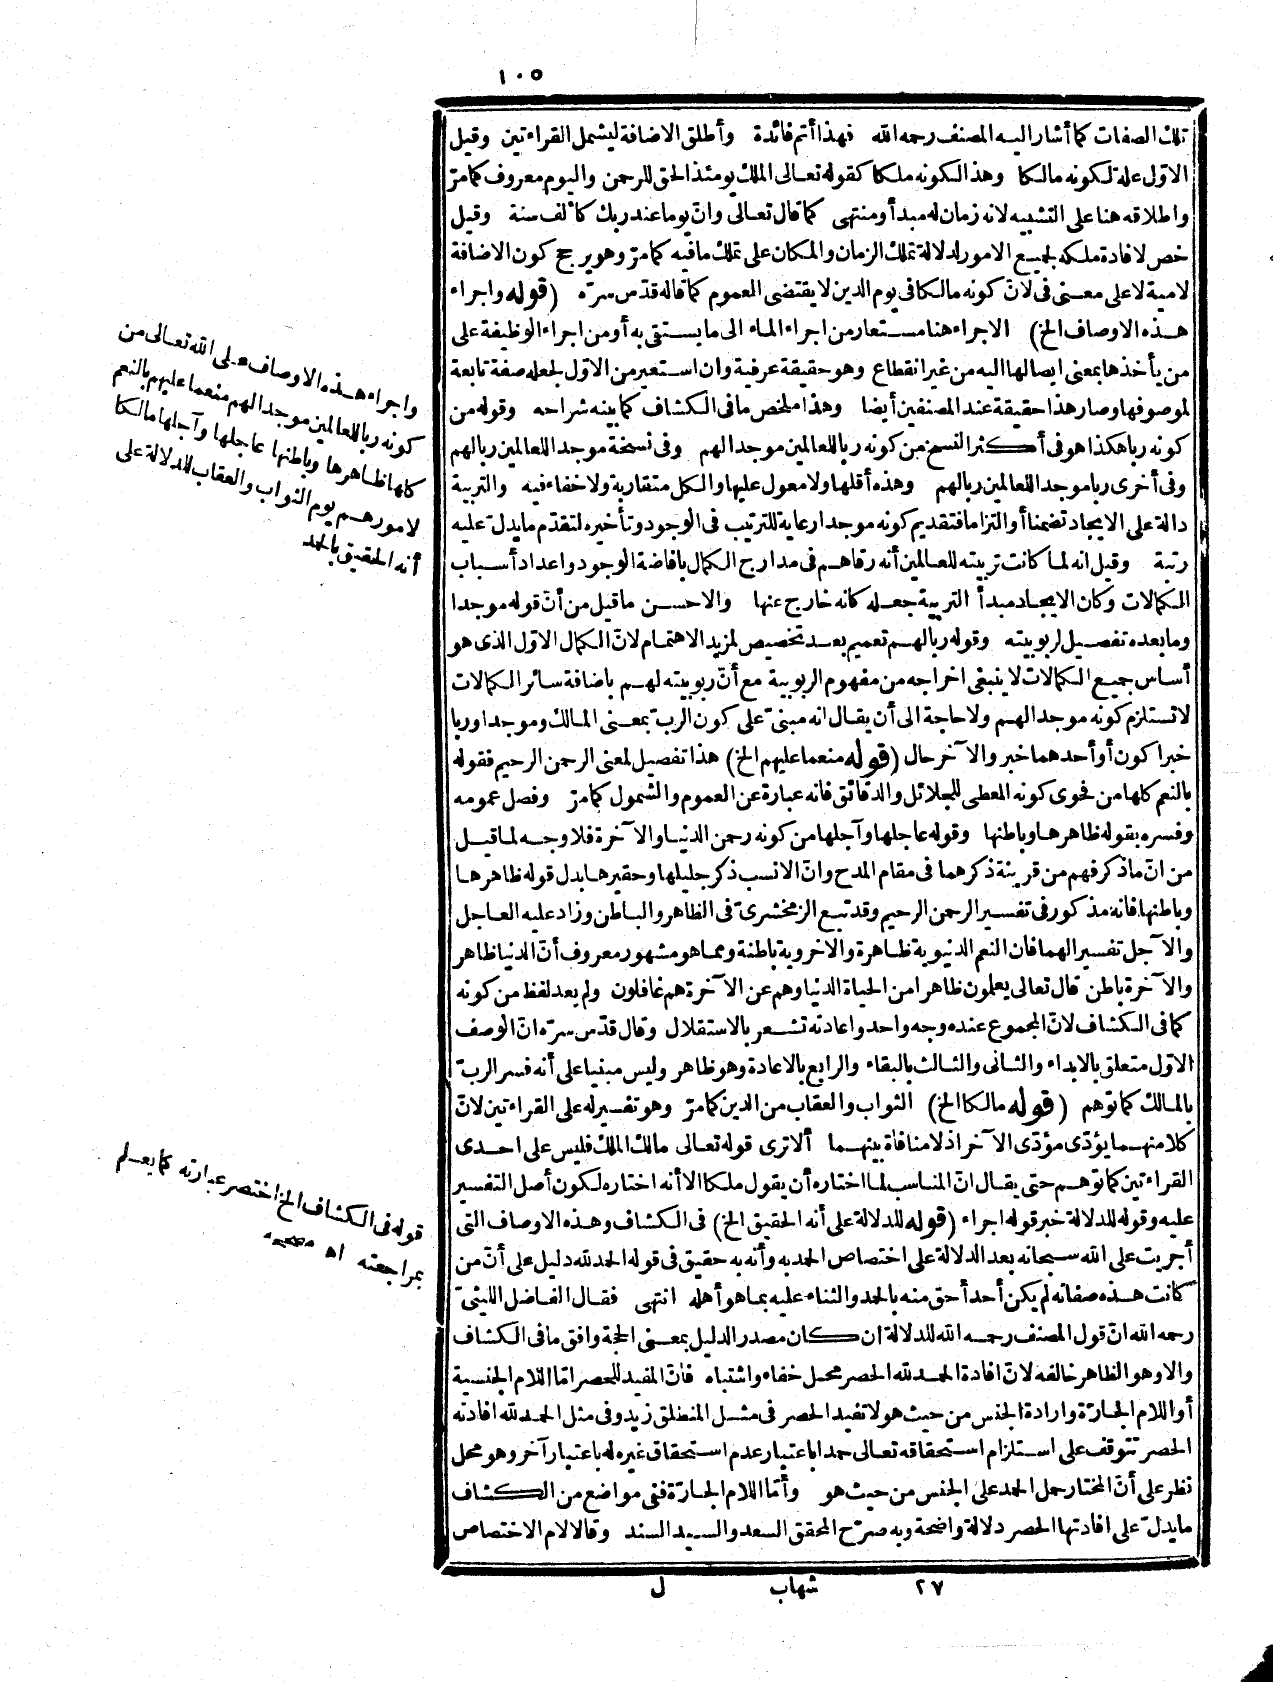 ١٠٥
تلك الصفات كما أشار اليه المصنف رحمه الله فهذا أتم فائدة وأطلق الاضافة ليشمل القراءتين وقيل
الاوّل علة لكونه مالكا وهذا لكونه ملكا كقوله تعالى الملك يومئذ الحق للرحمن واليوم معروف كما مرّ
واطلاقه هنا على التشبيه لانه زمان له مبدأ ومنتهى كما قال تعالى وانّ يوما عند ربك كألف سنة وقيل
خص لافادة ملكه لجميع الامور لدلالة تملك الزمان والمكان على تملك ما فيه كما مرّ وهو يرجح كون الاضافة
لامية لا على معنى فى لانّ كونه مالكا فى يوم الدين لا يقتضى العموم كما قاله قدّس سرّه (قوله واجراء
هذه الاوصاف الخ) الاجراء هنا مستعار من اجراء الماء الى ما يستقى به أو من اجراء الوظيفة على
من يأخذها بمعنى ايصالها اليه من غير انقطاع وهو حقيقة عرفية وان استعير من الاوّل لجعله صفة تابعة
لموصوفها وصار هذا حقيقة عند المصنفين أيضا وهذا ملخص ما فى الكشاف كما بينه شراحه وقوله من
كونه ربا هكذا هو فى أكثر النسخ من كونه ربا للعالمين موجدا لهم وفى نسخة موجد اللعالمين ربا لهم
وفى أخرى ربا موجد اللعالمين ربا لهم وهذه أقلها ولا معول عليها والكل متقاربة ولا خفاء فيه والتربية
دالة على الايجاد تضمنا أو التزاما فتقديم كونه موجدا رعاية للترتيب فى الوجود وتأخيره لتقدّم ما يدلّ عليه
رتبة وقيل انه لما كانت تربيته للعالمين أنه رقاهم فى مدارج الكمال بافاضة الوجود واعداد أسباب
الكمالات وكان الايجاد مبدأ التربية جعله كانه خارج عنها والاحسن ما قيل من أنّ قوله موجدا
وما بعده تفصيل لربوبيته وقوله ربا لهم تعميم بعد تخصيص لمزيد الاهتمام لانّ الكمال الاوّل الذى هو
أساس جميع الكمالات لا ينبغى اخراجه من مفهوم الربوبية مع أنّ ربوبيته لهم باضافة سائر الكمالات
لا تستلزم كونه موجدا لهم ولا حاجة الى أن يقال انه مبنىّ على كون الربّ بمعنى المالك وموجدا وربا
خبرا كون أو أحدهما خبر والآخر حال (قوله منعما عليهم الخ) هذا تفصيل لمعنى الرحمن الرحيم فقوله
بالنعم كلها من فحوى كونه المعطى للجلائل والدقائق فانه عبارة عن العموم والشمول كما مرّ وفصل عمومه
وفسره بقوله ظاهرها وباطنها وقوله عاجلها وآجلها من كونه رحمن الدنيا والآخرة فلا وجه لما قيل
من انّ ما ذكر فهم من قرينة ذكرهما فى مقام المدح وانّ الانسب ذكر جليلها وحقيرها بدل قوله ظاهرها
وباطنها فانه مذكور فى تفسير الرحمن الرحيم وقد تبع الزمخشرىّ فى الظاهر والباطن وزاد عليه العاجل
والآجل تفسيرا لهما فان النعم الدنيوية ظاهرة والاخروية باطنة ومما هو مشهور معروف أنّ الدنيا ظاهر
والآخرة باطن قال تعالى يعلمون ظاهرا من الحياة الدنيا وهم عن الآخرة هم غافلون ولم يعد لفظ من كونه
كما فى الكشاف لانّ المجموع عنده وجه واحد واعادته تشعر بالاستقلال وقال قدّس سرّه انّ الوصف
الاوّل متعلق بالابداء والثانى والثالث بالبقاء والرابع بالاعادة وهو ظاهر وليس مبنيا على أنه فسر الربّ
بالمالك كما توهم (قوله مالكا الخ) الثواب والعقاب من الدين كما مرّ وهو تفسير له على القراءتين لانّ
كلا منهما يؤدّى مؤدّى الآخر اذ لا منافاة بينهما ألا ترى قوله تعالى مالك الملك فليس على احدى
القراءتين كما توهم حتى يقال انّ المناسب لما اختاره أن يقول ملكا الا أنه اختاره لكون أصل التفسير
عليه وقوله للدلالة خبر قوله اجراء (قوله للدلالة على أنه الحقيق الخ) فى الكشاف وهذه الاوصاف التى
أجريت على الله سبحانه بعد الدلالة على اختصاص الحمد به وأنه به حقيق فى قوله الحمد لله دليل على أنّ من
كانت هذه صفاته لم يكن أحد أحق منه بالحمد والثناء عليه بما هو أهله انتهى فقال الفاضل الليثىّ
رحمه الله انّ قول المصنف رحمه الله للدلالة ان كان مصدر الدليل بمعنى الحجة وافق ما فى الكشاف
والا وهو الظاهر خالفه لانّ افادة الحمد لله الحصر محل خفاء واشتباه فانّ المفيد للحصر امّا اللام الجنسية
أو اللام الجارّة وارادة الجنس من حيث هو لا تفيد الحصر فى مثل المنطلق زيد وفى مثل الحمد لله افادته
الحصر تتوقف على استلزام استحقاقه تعالى حمدا باعتبار عدم استحقاق غيره له باعتبار آخر وهو محل
نظر على أنّ المختار حمل الحمد على الجنس من حيث هو وأمّا اللام الجارّة ففى مواضع من الكشاف
ما يدلّ على افادتها الحصر دلالة واضحة وبه صرّح المحقق السعد والسيد السند وقالا لام الاختصاص
٢٧ شهاب ل
واجراء هذه الاوصاف على الله تعالى من
كونه ربا للعالمين موجدا لهم منعما عليهم بالنعم
كلها ظاهرها وباطنها عاجلها وآجلها مالكا
لامورهم يوم الثواب والعقاب للدلالة على
أنه الحقيق بالحمد
قوله فى الكشاف الخ اختصر عبارته كما يعلم
بمراجعته اه مصححه